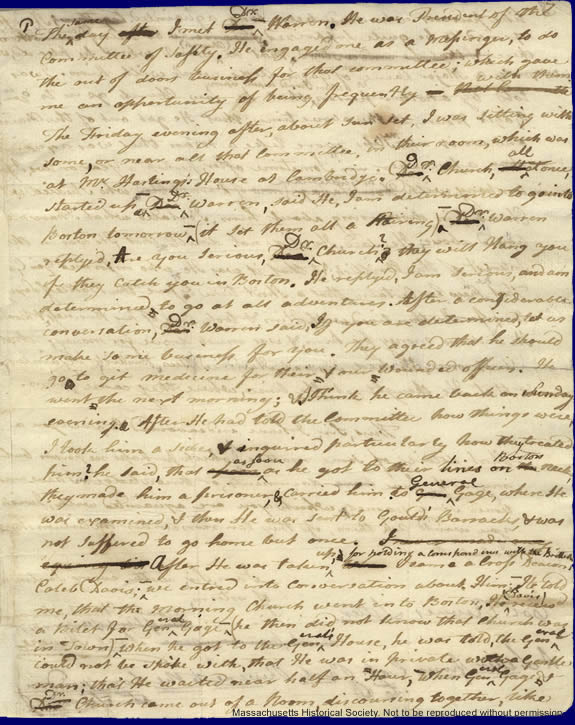 The same day I met Dr. Warren. He was President of the
Committee of Safety. He engaged me as a Messinger, to do
the out of doors business for that committee; which gave
me an opportunity of being frequently with them
The Friday evening after, about sun set, I was sitting with
some, or near all that Committee, in their room, which was
at Mr. Hastings's House at Cambridge. Dr. Church, all at once,
started up, Dr. Warren, said He, I am determined to go into
Boston tomorrow (it set them all a stairing) Dr. Warren
replyed, Are you serious, Dr. Church? they will Hang you
if they catch you in Boston. He replyed, I am serious, and am
determined to go at all adventures. After a considerable
conversation, Dr. Warren said, If you are determined, let us
make some business for you. They agreed that he should
go to git medicine for their & our wounded officers. He
went the next morning; & I think he came back on Sunday
evening. After He had told the Committee how things were,
I took him a side, & inquired particularly how they treated
him? he said, that as soon as he got to their lines on Boston neck,
they made him a prisoner, & carried him to General Gage, where He
was examined, & then He was sent to Gould's Barracks, & was
not suffered to go home but once.
After He was taken up, for holding a correspondence with the British,
I came a Cross Deacon
Caleb Davis; we entred into Conversation about Him; He told
me, that the morning Church went in to Boston, He (Davis) received
a billet for General Gage (he then did not know that Church was
in Town) when he got to the General's House, he was told, the General
could not be spoke with, that He was in private with a Gentle-
man; that He waited near half an Hour, when General Gage &
Dr. Church came out of a Room, discoursing together, like
Massachusetts Historical Society. Not to be reproduced without permission.